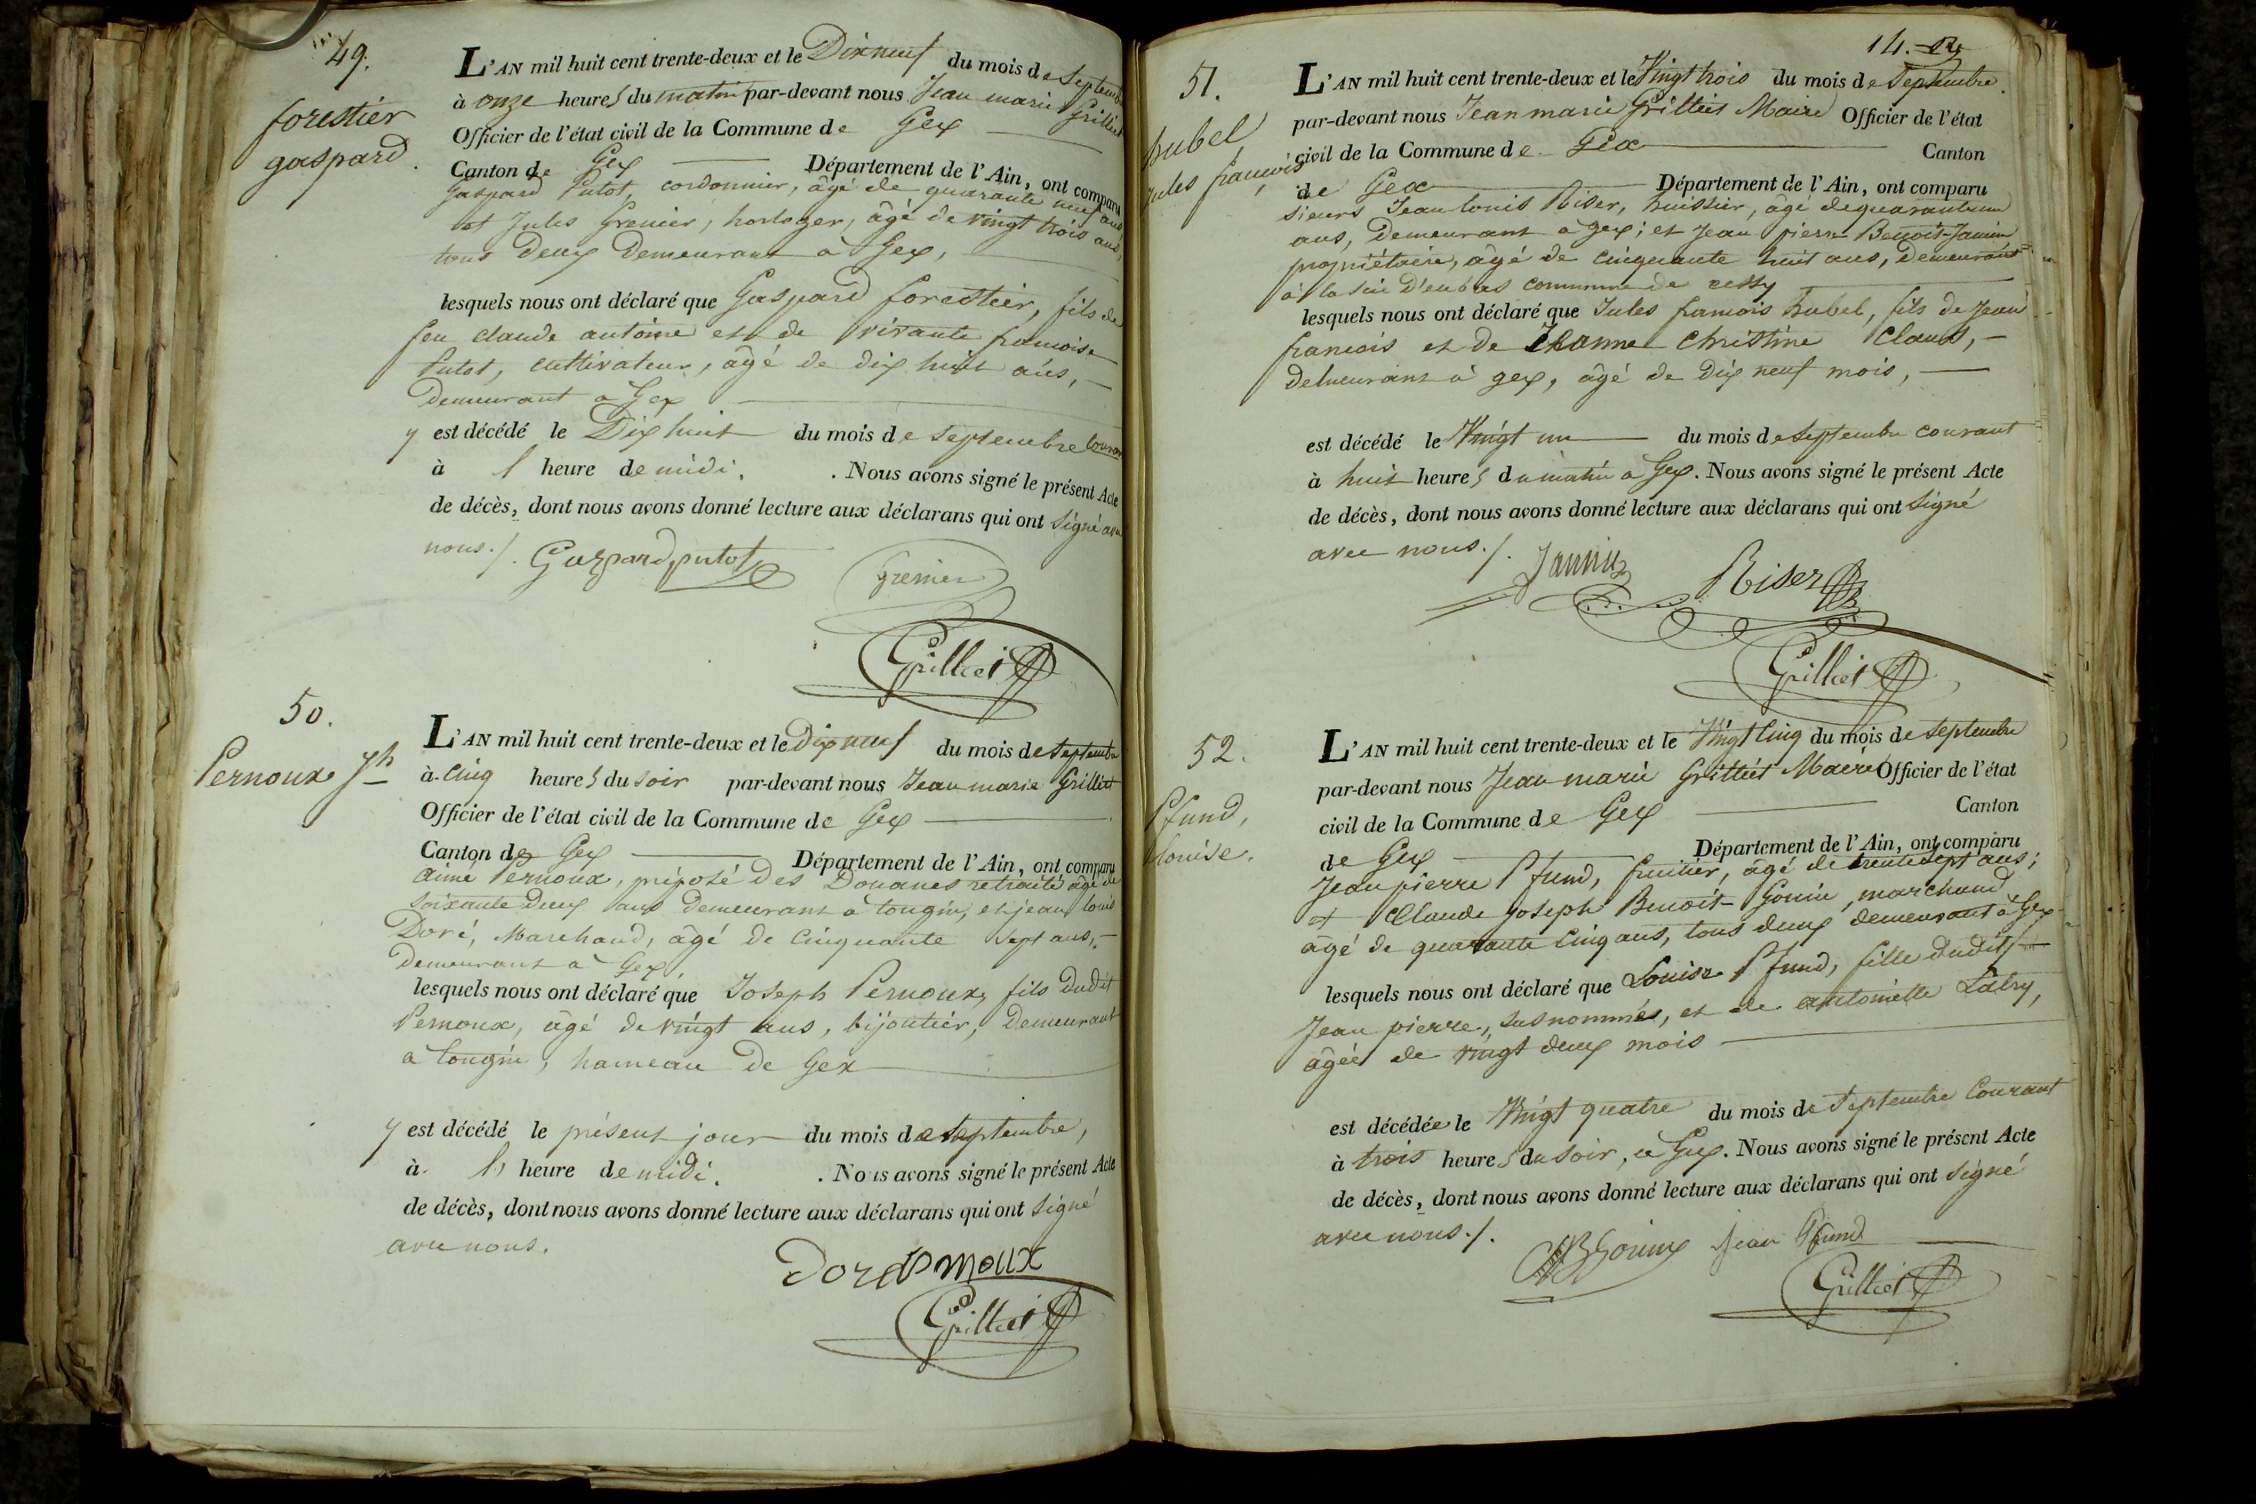 49.
forestier
gaspard.
L'AN mil huit cent trente-deux et le Dix neuf du mois de Septembre
à onze heures du matin par-devant nous Jean marie Grilliet
Officier de l'état civil de la Commune de Gex
Canton de Gex Département de l'Ain, ont comparu
Gaspard Putot, cordonnier, âgé de quarante neuf ans
et Jules Grenier, horloger, âgé de vingt trois ans,
tous deux demeurant à Gex,
lesquels nous ont déclaré que Gaspard forestier, fils de
feu claude antoine et de vivante francoise
Putot, cultivateur, âgé de dix huit ans,
demeurant à Gex
y est décédé le Dix huit du mois de septembre courant
à 1 heure de midi. . Nous avons signé le présent Acte
de décès, dont nous avons donné lecture aux déclarans qui ont signé avec
nous./. Gaspard putot Grenier
Grilliet
50.
Pernoux Jh
L'AN mil huit cent trente-deux et le Dix neuf du mois de septembre
à cinq heures du soir par-devant nous Jean marie Grilliet
Officier de l'état civil de la Commune de Gex
Canton de Gex Département de l'Ain, ont comparu
aimé Pernoux, préposé des Douanes retraité âgé de
soixante deux ans demeurant à tougin, et jean louis
Doré, Marchand, âgé de cinquante sept ans,
demeurant à Gex,
lesquels nous ont déclaré que Joseph Pernoux, fils dudit
Pernoux, âgé de vingt ans, bijoutier, demeurant
à tougin, hameau de Gex
y est décédé le présent jour du mois de septembre,
à 1 heure de midi. . Nous avons signé le présent Acte
de décès, dont nous avons donné lecture aux déclarans qui ont signé
avec nous.
Doré
Grilliet
14.
51.
hubel
jules françois
L'AN mil huit cent trente-deux et le Vingt trois du mois de Septembre.
par-devant nous Jean marie Grilliet Maire Officier de l'état
civil de la Commune de Gex Canton
de Gex Département de l'Ain, ont comparu
sieurs Jean louis Riser, huissier, âgé de quarante un
ans, demeurant à gex; et Jean pierre Benoit-Jannin
propriétaire, âgé de cinquante huit ans, demeurant
à la scie d'enbas commune de cessy
lesquels nous ont déclaré que Jules francois hubel, fils de Jean
francois et de Jeanne Christine Claus,
demeurant à gex, âgé de dix neuf mois,
est décédé le Vingt un du mois de septembre courant
à huit heures du matin à Gex. Nous avons signé le présent Acte
de décès, dont nous avons donné lecture aux déclarans qui ont signé
avec nous./. Jannin Riser
Grilliet
52.
Pfund,
Louise.
L'AN mil huit cent trente-deux et le Vingt cinq du mois de septembre
par-devant nous Jean marie Grilliet Maire Officier de l'état
civil de la Commune de Gex Canton
de Gex Département de l'Ain, ont comparu
Jean pierre Pfund, fruitier, âgé de trente sept ans;
et Claude joseph Benoit-Gonin, marchand
âgé de quarante cinq ans, tous deux demeurant à Gex
lesquels nous ont déclaré que Louise Pfund, fille dudit
Jean pierre, susnommés, et de antoinette
âgée de vingt deux mois
est décédée le Vingt quatre du mois de septembre Courant
à trois heures du soir, à Gex. Nous avons signé le présent Acte
de décès, dont nous avons donné lecture aux déclarans qui ont signé
avec nous./. Gonin Jean Pfund
Grilliet